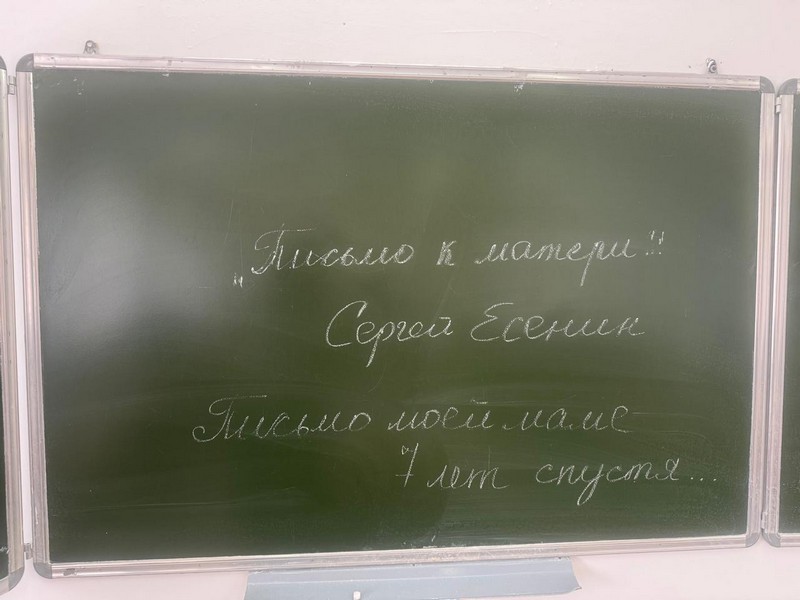 „Письмо к матери"
Сергей Есенин
Письмо моей маме
7 лет спустя...